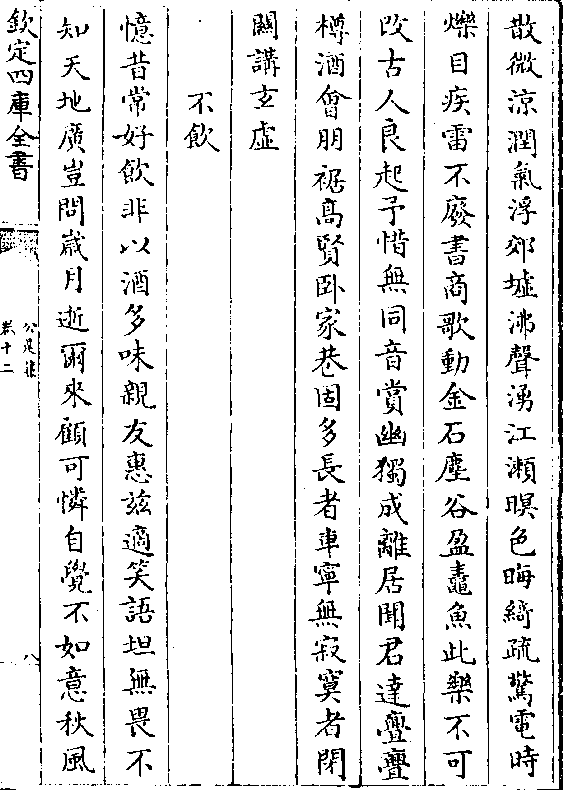 散微涼潤氣浮郊墟沸聲湧江瀨暝色晦綺疏驚電時
爍目疾雷不廢書商歌動金石塵谷盈蠹魚此樂不可
改古人良起予惜無同音賞幽獨成離居聞君達亹亹
樽酒會朋裾高賢卧家巷固多長者車寧無寂寞者閉
闗講玄虛
不飲
憶昔常好飲非以酒多味親友惠兹適笑語坦無畏不
知天地廣豈問歲月逝爾來顧可憐自覺不如意秋風
欽定四庫全書
公是集
卷十二
八